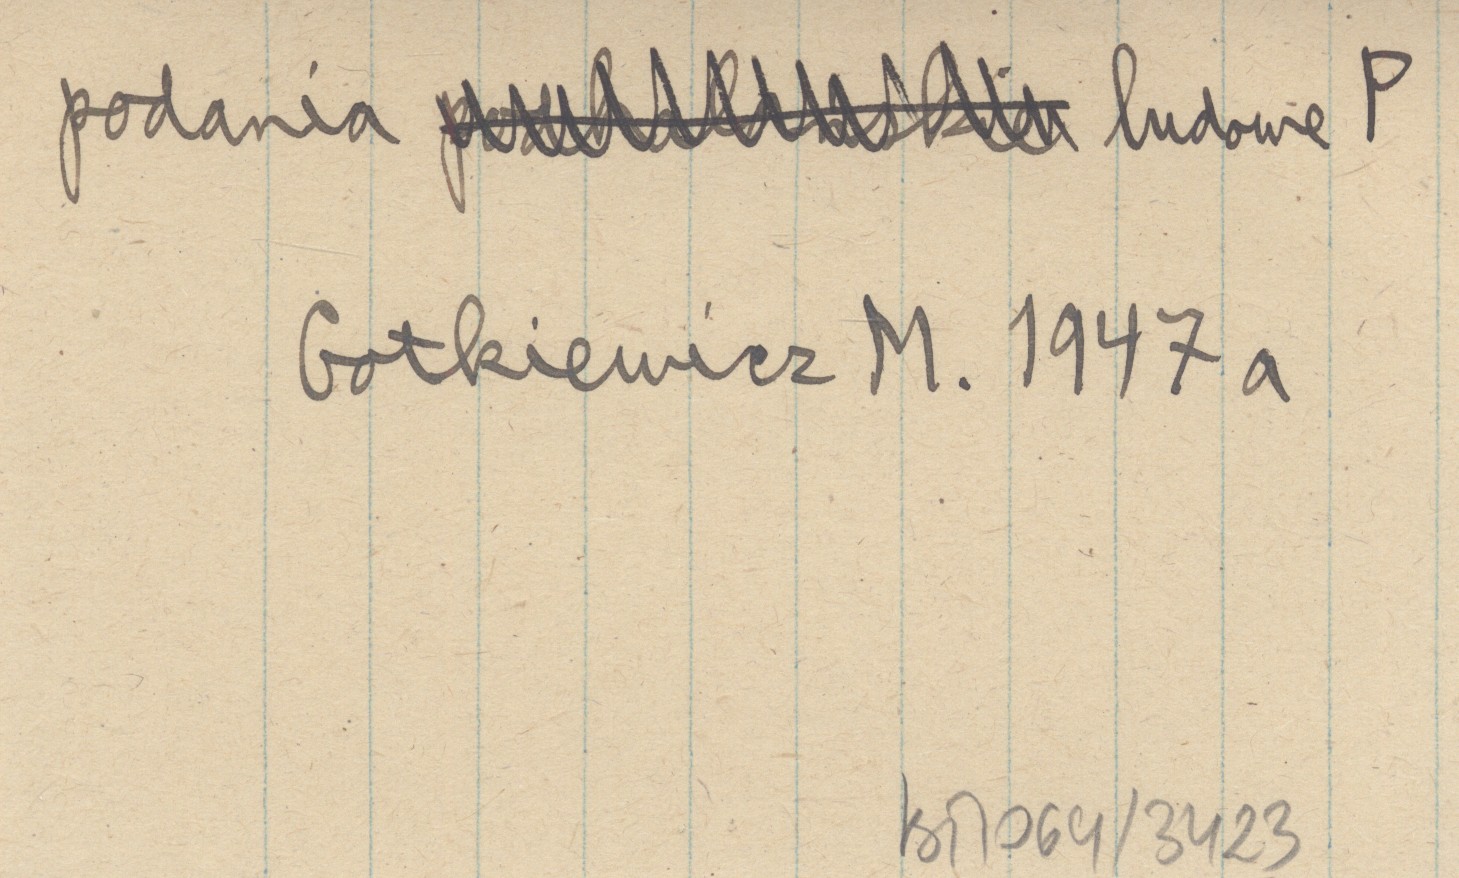 podania ludowe P
Gotkiewicz M. 1947 a
064/3423